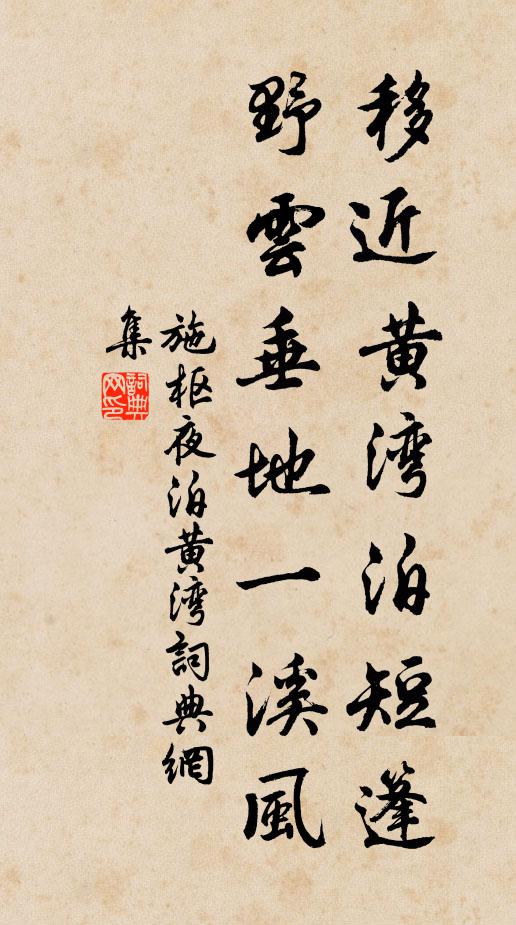 移近黄湾泊短篷
野雲垂地一溪風
施枢夜泊黄湾詞典網
集
詞典
网印